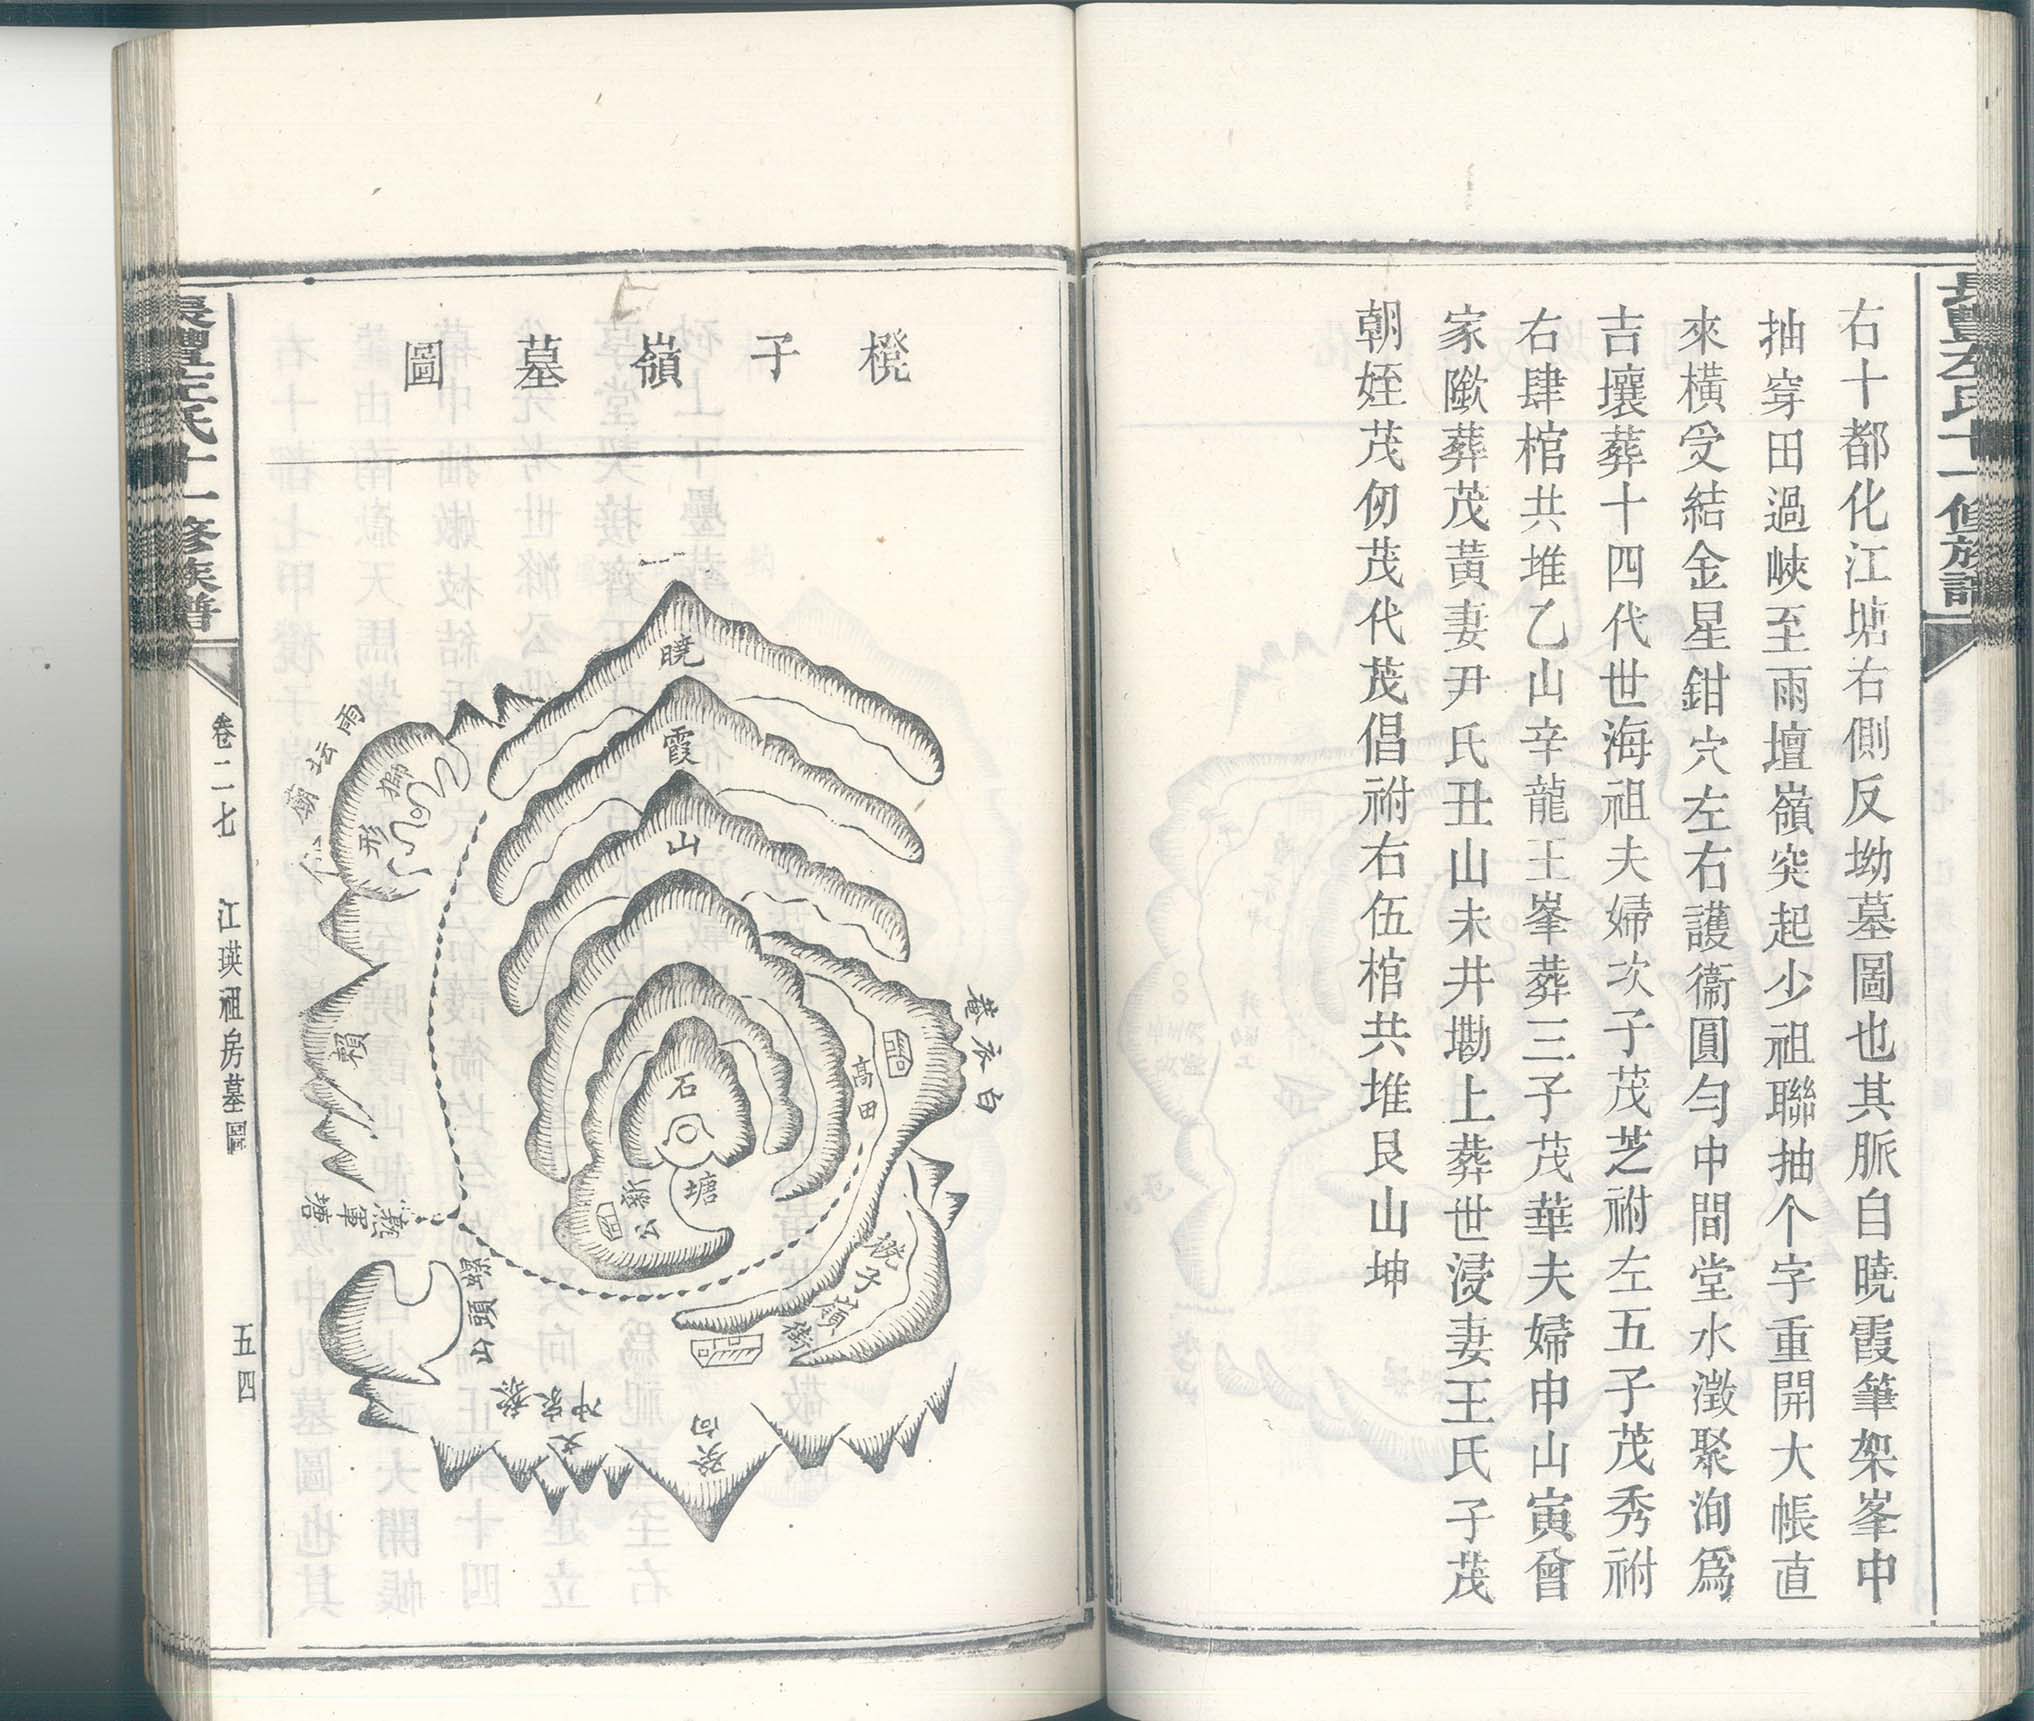 右十都化江塘右側反坳墓圖也其脈自曉霞筆架峯中
抽穿田過峽至雨壇嶺突起少祖聯抽个字重開大帳直
來橫受結金星鉗穴左右護衞圓勻中間堂水澂聚洵爲
吉壤葬十四代世海祖夫婦次子茂芝祔左五子茂秀祔
右肆棺共堆乙山辛龍王峯葬三子茂華夫婦申山寅曾
家歘葬茂黃妻尹氏丑山未井勘上葬世浸妻王氏子茂
朝姪茂仞茂代茂倡祔右伍棺共堆艮山坤
氏十一修族譜
櫈子嶺墓圖
曉
霞
山
石
塘
新
公
高田
白衣菴
櫈子嶺
獅形
雨坛廟
賴
山頭
癸向
氏十一修族譜
卷二七
江瑛祖房墓圖
五四